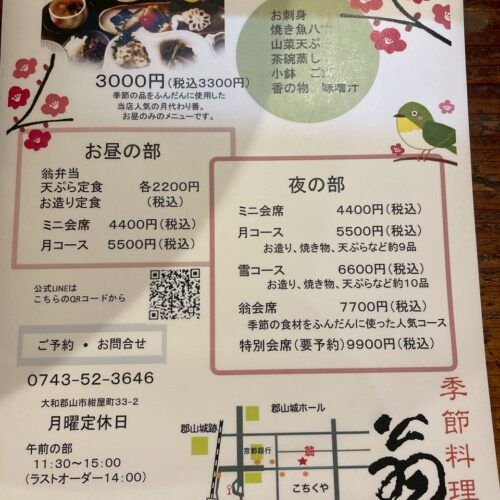 お刺身
焼き魚八
山菜天ぷ
茶碗蒸し
小鉢 ご
香の物 味噌汁
3000円(税込3300円)
季節の品をふんだんに使用した
当店人気の月代わり善。
お昼のみのメニューです。
お昼の部
翁弁当
天ぷら定食 各2200円
お造り定食 (税込)
ミニ会席 4400円(税込)
月コース 5500円(税込)
夜の部
ミニ会席 4400円(税込)
月コース 5500円(税込)
お造り、焼き物、天ぷらなど約9品
雪コース 6600円(税込)
お造り、焼き物、天ぷらなど約10品
翁会席 7700円(税込)
季節の食材をふんだんに使った人気コース
特別会席(要予約)9900円(税込)
公式LINEは
こちらのQRコードから
ご予約・お問合せ
0743-52-3646
大和郡山市紺屋町33-2
月曜定休日
午前の部
11:30〜15:00
(ラストオーダー14:00)
郡山城ホール
郡山城跡
京都銀行
翁
こちくや
季節料理
翁